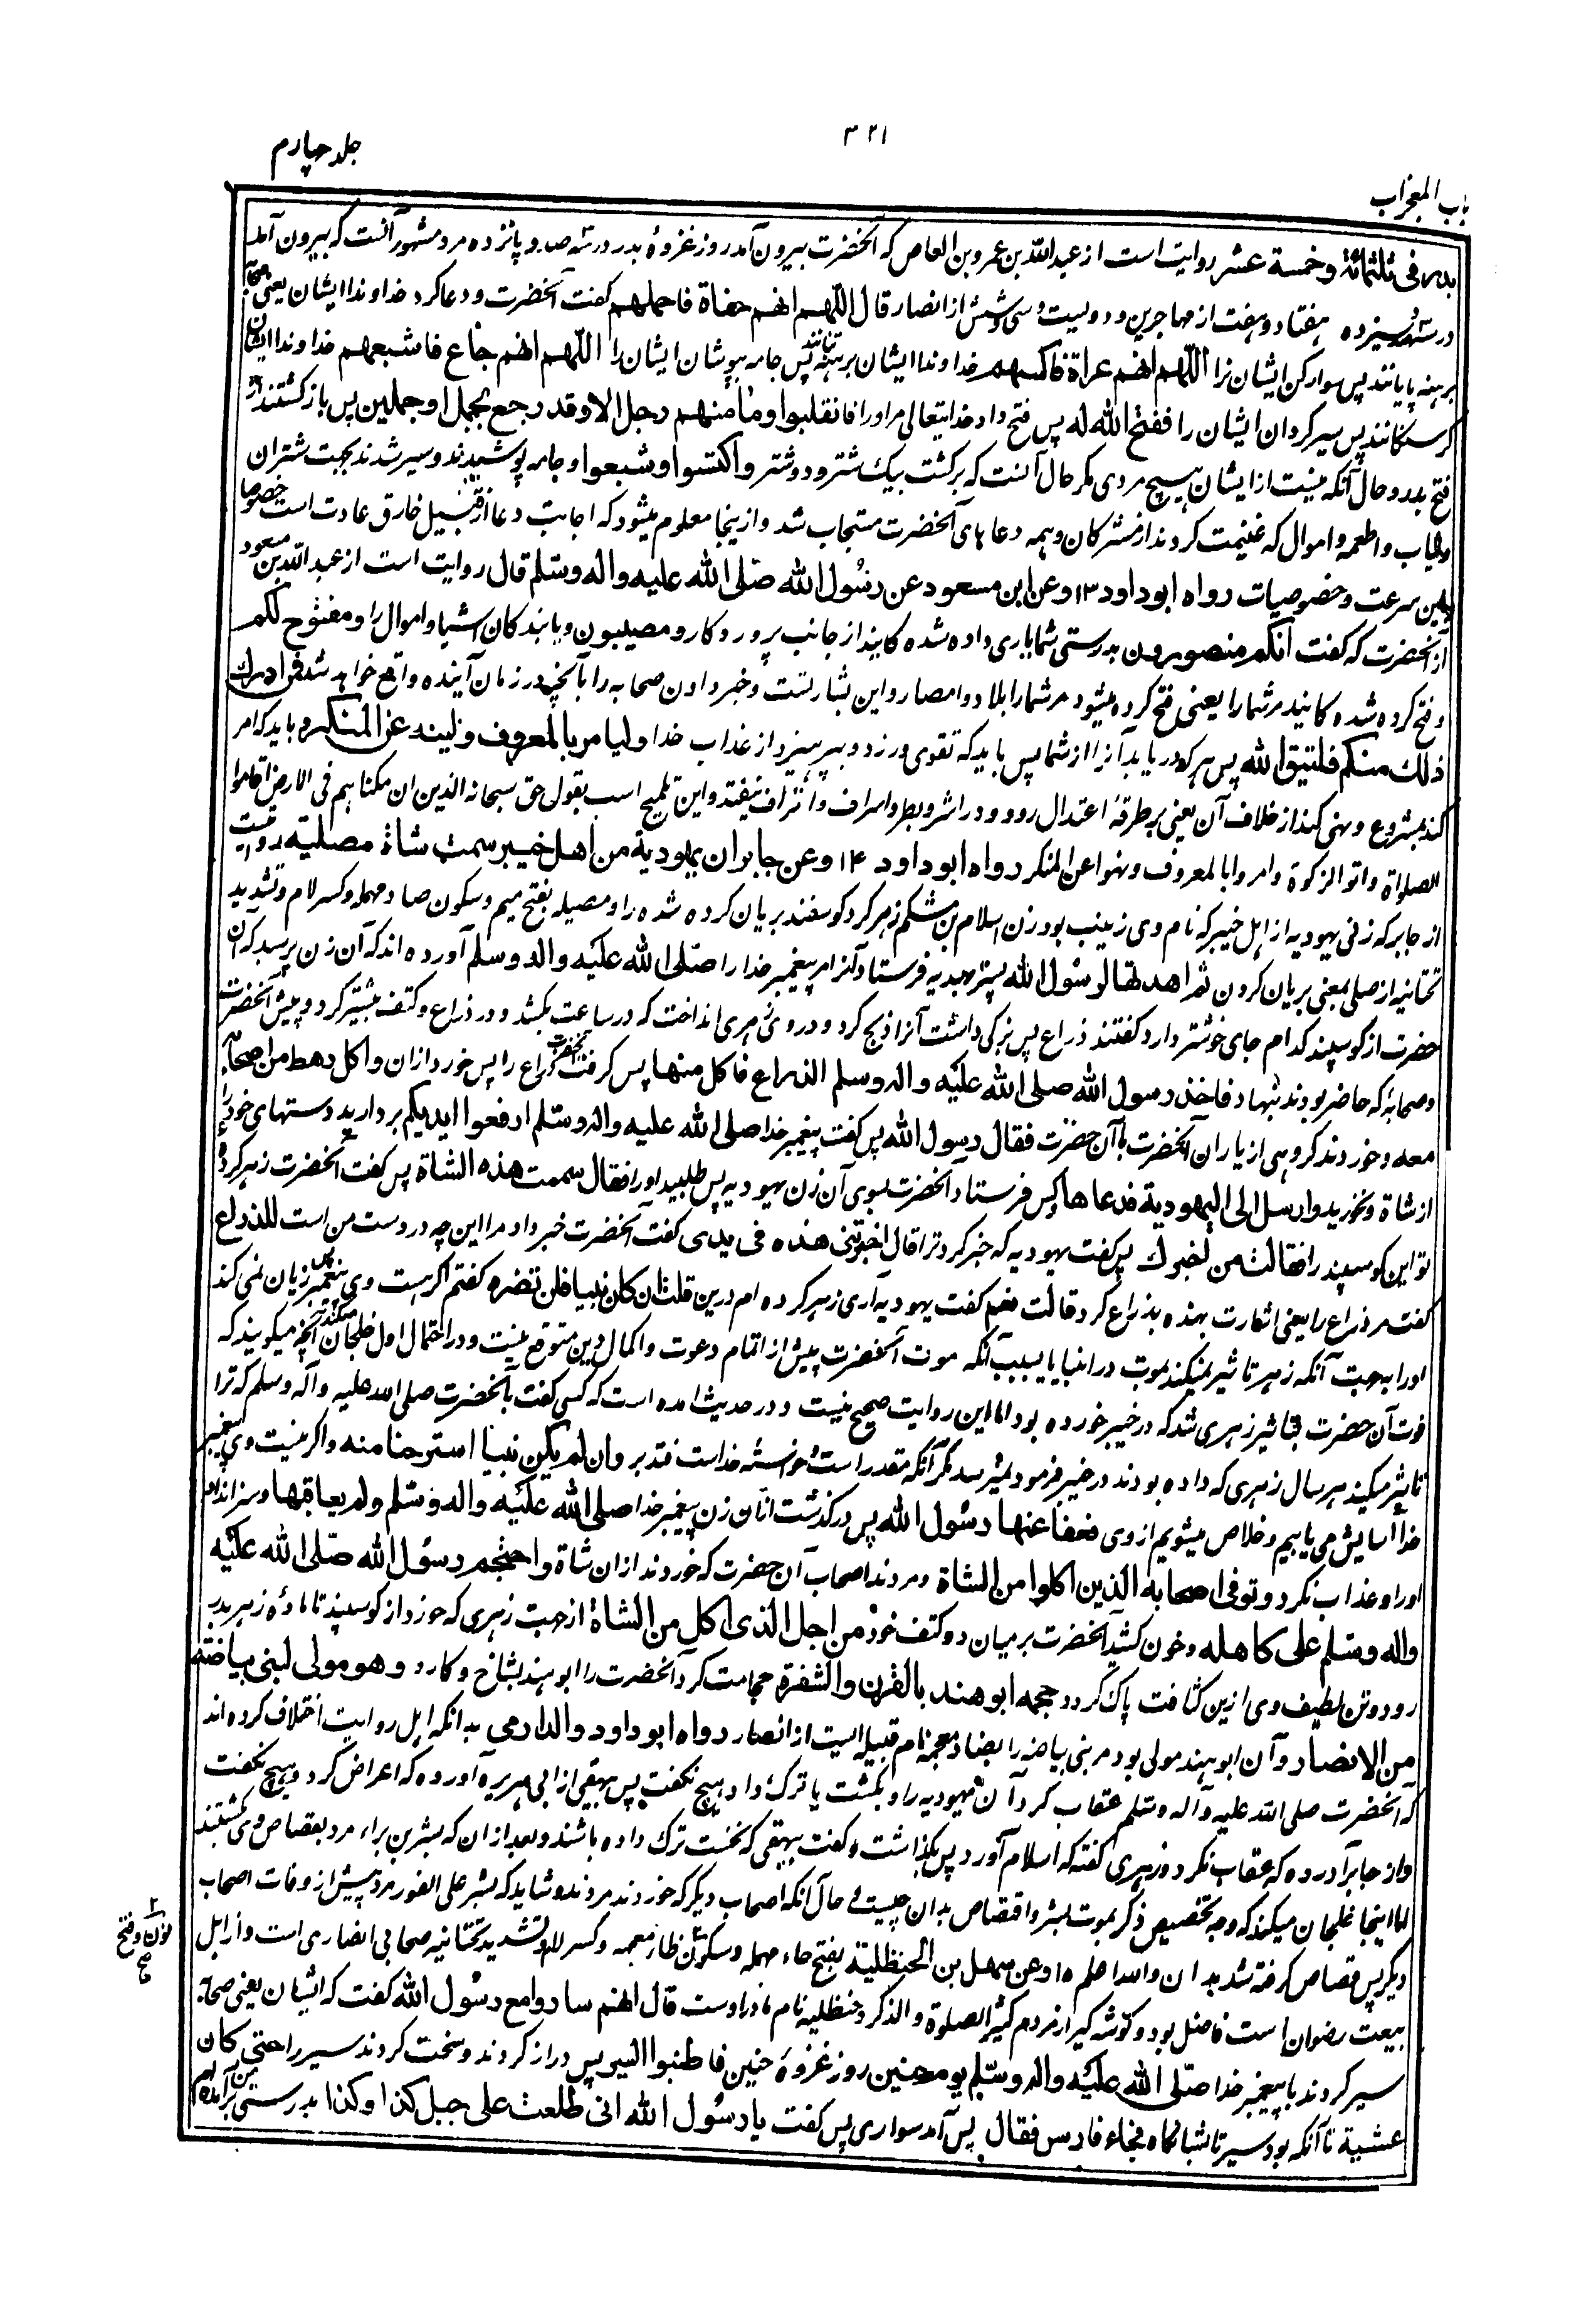 ۳۲۱
جلد چهارم
باب المعجزات
بدر فی ثلثمائة و خمسة عشر روایت است از عبدالله بن عمرو بن العاص که آنحضرت بیرون آمد روز غزوهٔ بدر در سه صد و پانزده مرد مشهور آنست که بیرون آمد
در سه صد و سیزده هفتاد و هفت از مهاجرین و دویست و سی و شش از انصار قال اللهم انهم حفاة فاحملهم گفت آنحضرت و دعا کرد خداوندا ایشان یعنی صحابه
برهنه پایانند پس سوار کن ایشان را اللهم انهم عراة فاکسهم خداوندا ایشان برهنه تنانند پس جامه بپوشان ایشان را اللهم انهم جیاع فاشبعهم خداوندا ایشان
گرسنگانند پس سیر گردان ایشان را ففتح الله له پس فتح داد خدایتعالی مر او را فانقلبوا وما منهم رجل الا وقد رجع بجمل او جملین پس بازگشتند از
فتح بدر و حال آنکه نیست از ایشان هیچ مردی مگر حال آنست که برگشت بیک شتر و دو شتر واکتسوا وشبعوا و جامه پوشیدند و سیر شدند بجهت شتران
و ثیاب و اطعمه و اموال که غنیمت کردند از مشرکان و همه دعاهای آنحضرت مستجاب شد و ازینجا معلوم میشود که اجابت دعا از قبیل خارق عادت است خصوصا
باین سرعت و خصوصیات رواه ابو داود ۱۳ وعن ابن مسعود عن رسول الله صلی الله علیه واله وسلم قال روایت است از عبدالله بن مسعود
از آنحضرت که گفت انکم منصورون بدرستی شما یاری داده شده گانید از جانب پروردگار و مصیبون و یابندگان اشیا و اموال را و مفتوح لکم
و فتح کرده شده گانید مر شما را یعنی فتح کرده میشود مر شما را بلاد و امصار و این بشارتست و خبر دادن صحابه را بآنچه در زمان آینده واقع خواهد شد فمن ادرك
ذلك منکم فلیتق الله پس هر که دریابد آنرا از شما پس باید که تقوی ورزد و بپرهیزد از عذاب خدا ولیامر بالمعروف ولینه عن المنکر و باید که امر
کند بمشروع و نهی کند از خلاف آن یعنی بر طریقهٔ اعتدال رود و در اشر و بطر و اسراف و اتراف نیفتد و این تلمیح است بقول حق سبحانه الذین ان مکناهم فی الارض اقاموا
الصلواة واتوا الزکوة وامروا بالمعروف ونهوا عن المنکر رواه ابو داود ۱۴ وعن جابر ان یهودیة من اهل خیبر سمت شاة مصلیة روایت است
از جابر که زنی یهودیه از اهل خیبر که نام وی زینب بود زن سلام بن مشکم زهر کرد گوسفند بریان کرده شده را و مصلیه بفتح میم و سکون صاد مهمله و کسر لام و تشدید
تحتانیه از صلی بمعنی بریان کردن ثم اهدتها لرسول الله پستر هدیه فرستاد آنرا مر پیغمبر خدا را صلی الله علیه واله وسلم آورده اند که آن زن پرسید که آن
حضرت از گوسپند کدام جای خوشتر دارد گفتند ذراع پس بزکی داشت آنرا ذبح کرد و در وی زهری انداخت که در ساعت بکشد و در ذراع و کتف بیشتر کرد و پیش آنحضرت
و صحابهٔ که حاضر بودند بنهاد فاخذ رسول الله صلی الله علیه واله وسلم الذراع فاکل منها پس گرفت آنحضرت ذراع را پس خورد ازان واکل رهط من اصحابه
معه و خوردند گروهی از یاران آنحضرت با آن حضرت فقال رسول الله پس گفت پیغمبر خدا صلی الله علیه واله وسلم ارفعوا ایدیکم بردارید دستهای خود را
از شاة و نخورید وارسل الی الیهودیة فدعاها پس فرستاد آنحضرت بسوی آن زن یهودیه پس طلبید او را فقال سممت هذه الشاة پس گفت آنحضرت زهر کردهٔ
تو این گوسپند را فقالت من اخبرك پس گفت یهودیه که خبر کرد ترا قال اخبرتنی هذه فی یدی گفت آنحضرت خبر داد مرا این چه در دست من است للذراع
گفت مر ذراع را یعنی اشارت بهذه بذراع کرد قالت نعم گفت یهودیه آری زهر کرده ام درین قلت ان کان نبیا فلن تضره گفتم اگر هست وی پیغمبر پس زیان نمی کند
او را بجهت آنکه زهر تاثیر نمیکند بموت در انبیا یا بسبب آنکه موت آنحضرت پیش از اتمام دعوت و اکمال دین متوقع نیست و در احتمال اول خلجان میکند آنچه میگویند که
فوت آن حضرت بتاثیر زهری شد که در خیبر خورده بود اما این روایت صحیح نیست و در حدیث آمده است که کسی گفت بآنحضرت صلی الله علیه وآله وسلم که ترا
تاثیر میکند هر سال زهری که داده بودند در خیبر فرمود نمیرسد مگر آنکه مقدر است و خواستهٔ خداست فتدبر وان لم یکن نبیا استرحنا منه واگر نیست وی پیغمبر
خدا آسایش می یابیم و خلاص میشویم از وی فعفا عنها رسول الله پس درگذشت از آن زن پیغمبر خدا صلی الله علیه واله وسلم ولم یعاقبها و سزا نداد
او را و عذاب نکرد وتوفی اصحابه الذین اکلوا من الشاة و مردند اصحاب آن حضرت که خوردند ازان شاة واحتجم رسول الله صلی الله علیه
واله وسلم علی کاهله و خون کشید آنحضرت بر میان دو کتف خود من اجل الذی اکل من الشاة از جهت زهری که خورد از گوسپند تا مادهٔ زهر بدر
رود و تن لطیف وی ازین کثافت پاک گردد حجمه ابو هند بالقرن والشفرة حجامت کرد آنحضرت را ابو هند بشاخ و کارد وهو مولی لبنی بیاضة
من الانصار و آن ابو هند مولی بود مر بنی بیاضه را بضاد معجمه نام قبیله ایست از انصار رواه ابو داود والدارمی بدانکه اهل روایت اختلاف کرده اند
که آنحضرت صلی الله علیه وآله وسلم عقاب کرد آن یهودیه را و بکشت یا ترک داد و هیچ نگفت پس بیهقی از ابی هریره آورده که اعراض کرد و هیچ نگفت
واز جابر آورده که عقاب نکرد و زهری گفته که اسلام آورد پس بگذاشت و گفت بیهقی که نخست ترک داده باشد و بعد ازان که بشر بن براء مرد بقصاص وی کشتند
اما اینجا خلجان میکند که وجه تخصیص ذکر بموت بشر و اقتصاص بدان چیست و حال آنکه اصحاب دیگر که خوردند مردند و شاید که بشر علی الفور مرد پیش از وفات اصحاب
دیگر پس قصاص گرفته شد بدان والله اعلم ۱۵ وعن سهل بن الحنظلیة بفتح حاء مهمله و سکون ظاء معجمه و کسر لام و تشدید تحتانیه صحابی انصاری است و از اهل
نون و فتح
صح
بیعت رضوان است فاضل بود و گوشه گیر از مردم کثیر الصلوة والذکر و حنظلیه نام مادر اوست قال انهم ساروا مع رسول الله گفت که ایشان یعنی صحابه
سیر کردند با پیغمبر خدا صلی الله علیه واله وسلم یوم حنین روز غزوهٔ حنین فاطنبوا السیر پس دراز کردند و سخت کردند سیر را حتی کان
عشیة تا آنکه بود سیر تا شبانگاه فجاء فارس فقال پس آمد سواری پس گفت یا رسول الله انی طلعت علی جبل کذا وکذا بدرستی من برآمده ام